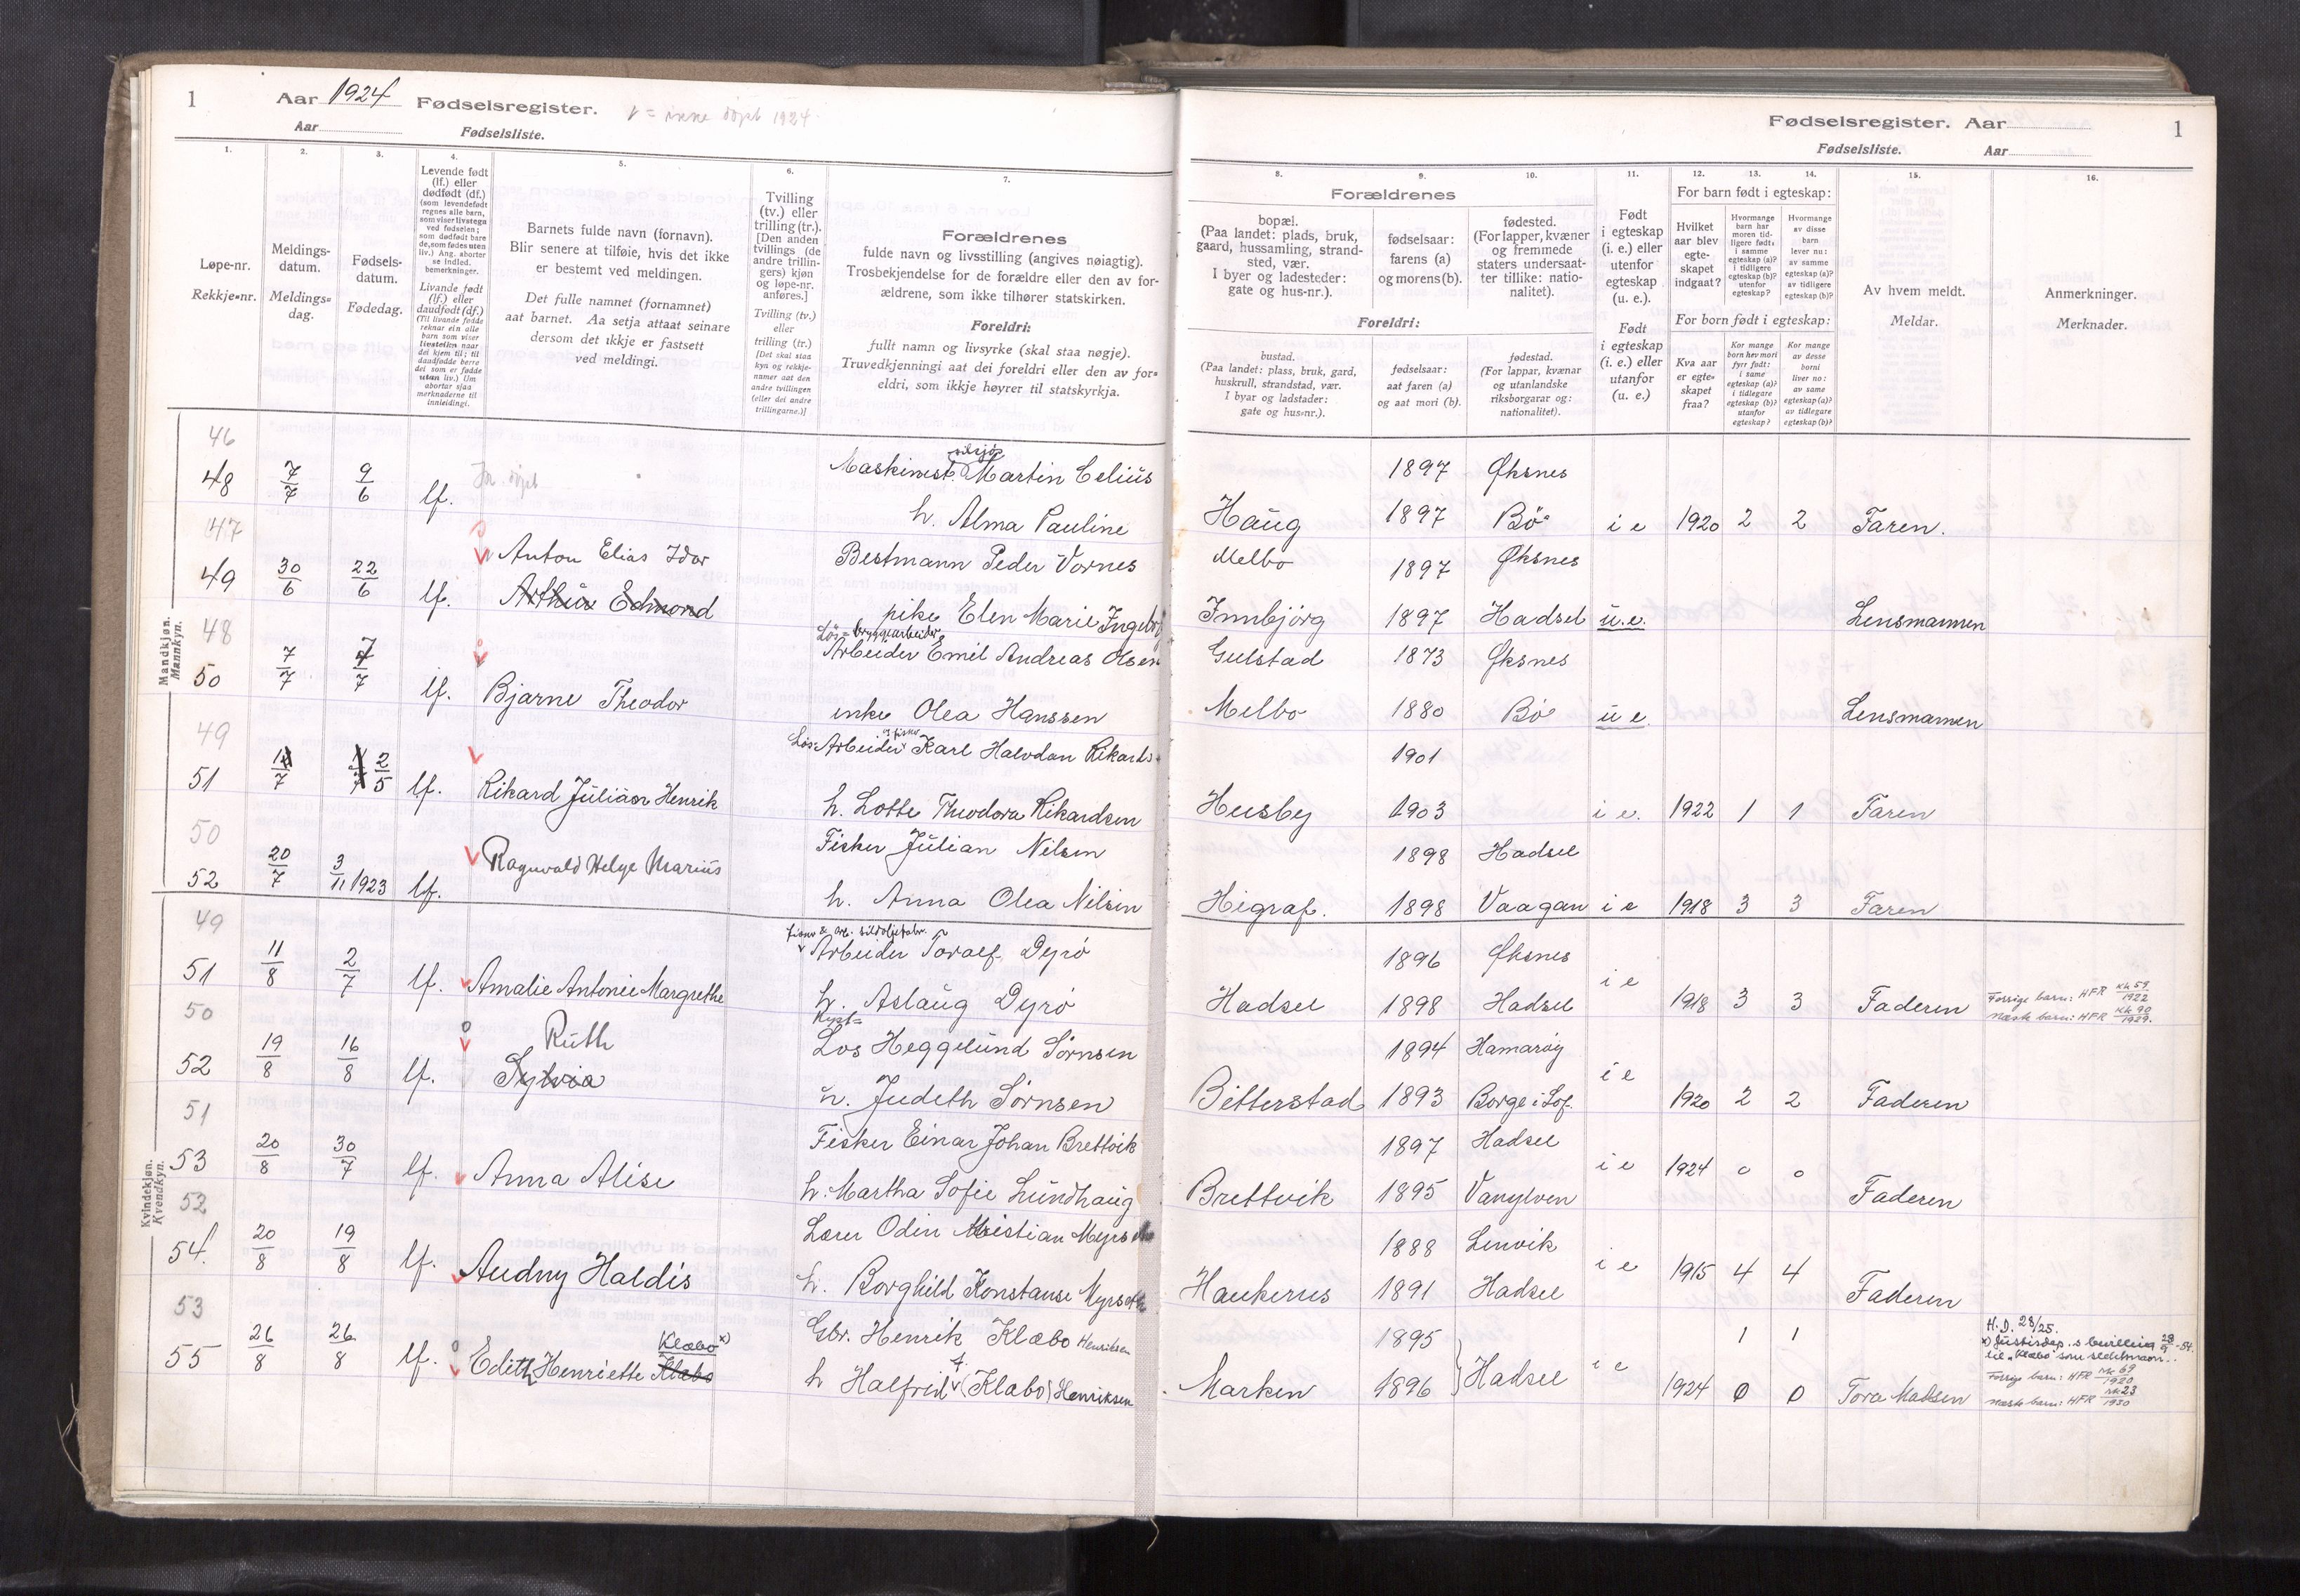 1
Aar 1924 Fødselsregister. v = ikke døpt 1924.
Aar
Fødselsliste.
1.
2.
3.
4.
5.
6.
7.
Løpe-nr.
Rekkje-nr.
Meldings-
datum.
Meldings-
dag.
Fødsels-
datum.
Fødedag.
Levende født
(lf.) eller
dødfødt (df.)
(som levendefødt
regnes alle barn,
som viser livstegn
ved fødselen;
som dødfødt bare
de, som fødes uten
liv.) Ang. aborter
se indled.
bemerkninger.
Livande født
(lf.) eller
daudfødt (df.)
(Til livande fødde
reknar ein alle
barn som viser
livsteikn naar
dei kjem til; til
daudfødde berre
dei som er fødde
utan liv.) Um
abortar sjaa
merknaderne til
innleidingi.
Barnets fulde navn (fornavn).
Blir senere at tilføie, hvis det ikke
er bestemt ved meldingen.
Det fulle namnet (fornamnet)
aat barnet. Aa setja attaat seinare
dersom det ikkje er fastsett
ved meldingi.
Tvilling
(tv.) eller
trilling (tr.).
[Den anden
tvillings (de
andre trillin-
gers) kjøn
og løpe-nr.
anføres.]
Tvilling (tv.)
eller
trilling (tr.)
[Det skal staa
kyn og rekkje-
numer aat den
andre tvillingen
(eller dei andre
trillingarne.)]
Forældrenes
fulde navn og livsstilling (angives nøiagtig).
Trosbekjendelse for de forældre eller den av for-
ældrene, som ikke tilhører statskirken.
Foreldri:
fullt namn og livsyrke (skal staa nøgje).
Truvedkjenningi aat dei foreldri eller den av for-
eldri, som ikkje høyrer til statskyrkja.
Fødselsregister. Aar
1
Fødselsliste.
Aar
8.
9.
10.
11.
12.
13.
14.
15.
16.
Forældrenes
bopæl.
(Paa landet: plads, bruk,
gaard, hussamling, strand-
sted, vær.
I byer og ladesteder:
gate og hus-nr.).
fødselsaar:
farens (a)
og morens (b).
fødested.
(For lapper, kvæner
og fremmede
staters undersaat-
ter tillike: natio-
nalitet).
Foreldri:
bustad.
(Paa landet: plass, bruk, gard,
huskrull, strandstad, vær.
I byar og ladstader:
gate og hus-nr.).
fødselsaar:
aat faren (a)
og aat mori (b).
fødestad.
(For lappar, kvænar
og utanlandske
riksborgarar og:
nationalitet).
Født
i egteskap
(i. e.) eller
utenfor
egteskap
(u. e.).
Født
i egteskap
(i. e.) eller
utanfor
(u. e.)
For barn født i egteskap:
Hvilket
aar blev
egte-
skapet
indgaat?
Hvormange
barn har
moren tid-
ligere født:
i samme
egteskap (a)?
i tidligere
egteskap (b)?
utenfor
egteskap?
Hvormange
av disse
barn
lever nu:
av samme
egteskap (a)?
av tidligere
egteskap (b)?
For born født i egteskap:
Kva aar
er egte-
skapet
fraa?
Kor mange
born hev mori
fyrr født:
i same
egteskap (a)?
i tidlegare
egteskap (b)?
utanfor
egteskap?
Kor mange
av desse
borni
liver no:
av same
egteskap (a)?
av tidlegare
egteskap (b)?
Av hvem meldt.
Meldar.
Anmerkninger.
Merknader.
Mandkjøn.
Mannkyn.
46
Maskinist Martin Celius 1897 Øksnes
48 7/7 9/6 lf. h. Alma Pauline Haug 1897 Bö i e 1920 2 2 Faren.
47
Anton Elias Idar Bestmann Peder Vornes Melbo 1897 Øksnes
49 30/6 22/6 lf. Arthur Edmond pike Elen Marie Ingebr Innbjörg 1897 Hadsel u.e. Lensmannen
48
Løs= bryggearbeider
Arbeider Emil Andreas Olsen Gulstad 1873 Øksnes
50 7/7 7/7 lf. Bjarne Theodor enke Olea Hanssen Melbo 1880 Bö u e. Lensmannen
49
Løs-Arbeider Karl Halvdan Rikards 1901
51 7 2/5 lf. Rikard Julian Henrik h. Lotte Theodora Rikardsen Husby 1903 i e. 1922 1 1 Faren
50
Fisker Julian Nilsen 1898 Hadsel
52 20/7 3/11 1923 lf. Ragnvald Helge Marius h. Anna Olea Nilsen Higraf. 1898 Vaagan i e 1918 3 3 Faren
Kvindekjøn.
Kvendkyn.
49
fisker & arb. sildoljefabr.
Arbeider Toralf Dyrö 1896 Øksnes
51 11/8 2/7 lf. Amalie Antonie Margrethe h. Aslaug Dyrö Hadsel 1898 Hadsel i e 1918 3 3 Faderen Forrige barn: HFR Kk 59/1922
Næste barn: HFR Kk 90/1929.
50
Kyst=
Ruth Los Heggelund Sörnsen 1894 Hamaröy
52 19/8 16/8 lf. Sylvia h. Judith Sörnsen Bitterstad 1893 Borge i Lof. i e 1920 2 2 Faderen
51
Fisker Einar Johan Brettvik 1897 Hadsel
53 20/8 30/7 lf. Anna Alise h. Martha Sofie Lundhaug Brettvik 1895 Vanylven i e 1924 0 0 Faderen
52
Lærer Odin Kristian Myrseth 1888 Lenvik
54. 20/8 19/8 lf. Audny Haldis h. Borghild Konstanse Myrseth Haukenes 1891 Hadsel i e 1915 4 4 Faderen
53
Gbr. Henrik Klæbo Henriksen 1895 1 1
55 26/8 26/8 lf. Edith Henriette Klabo Klæbo x) h Halfrid (Klabo) Henriksen Marken 1896 Hadsel i e 1924 0 0 Tora Madsen
H. D. 28/25.
x) Justisdep.s bevilling 28/9-54.
til „Klæbo" som slektsnavn.
Forrige barn: HFR Mk 69/1920
Næste barn: HFR Mk 23/1930